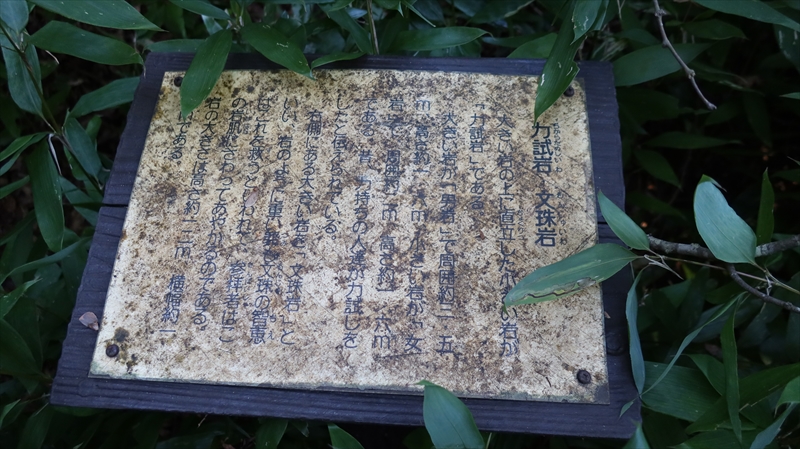 力試岩 文珠岩
大きい岩の上に直立した小さい岩が
「力試岩」である。
大きい岩が「男岩」で周囲約二・五
m、高さ約一・六m、小さい岩が「女
岩」で、周囲約一m、高さ約一・六m
である。昔、力持ちの人達が力試しを
したと伝えられている。
右側にある大きい岩を「文珠岩」と
いい、岩のように重い
これを救うといわれ、参拝者はこ
の岩肌にさわってあやかるのである。
岩の大きさは周囲約一二m、横幅約一
である。